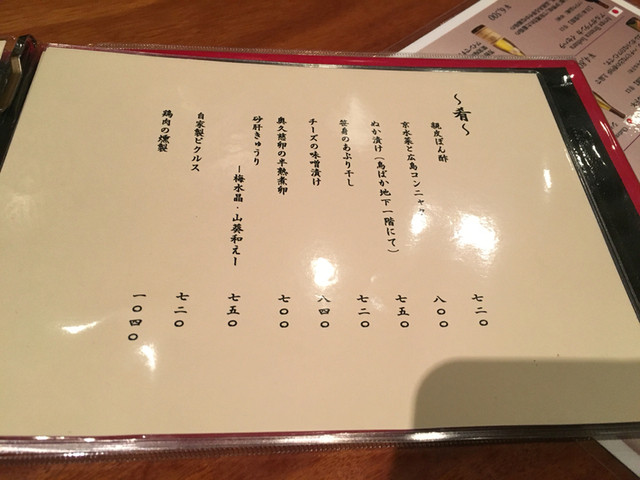 ～肴～
親皮ぽん酢
七二〇
京水菜と広島コンニャク
八〇〇
ぬか漬け（鳥ぱか地下一階にて）
七五〇
笹身のあぶり干し
七二〇
チーズの味噌漬け
八四〇
奥久慈卵の半熟煮卵
七〇〇
砂肝きゅうり
ー梅水晶・山葵和えー
七五〇
自家製ピクルス
七二〇
鶏肉の燻製
一〇四〇